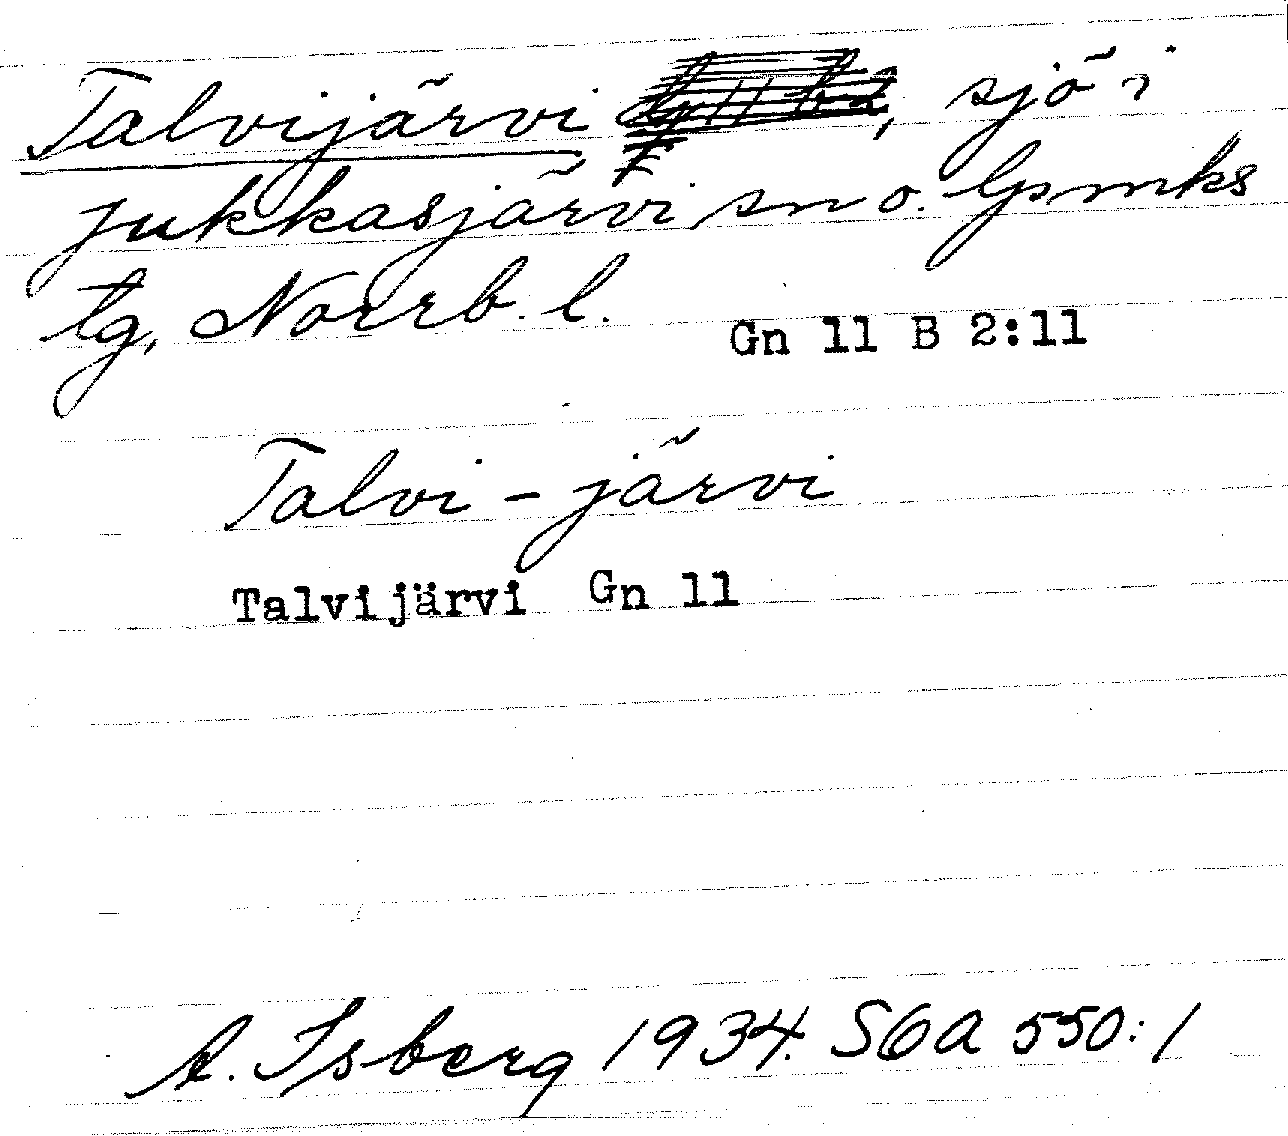 Talvijärvi , sjö i
Jukkasjärvi sn o. lpmks
tg, Norrb. l.
Gn 11 B 2:11
Talvi-järvi
Talvijärvi Gn 11
A. Isberg 1934. SOA 550:1